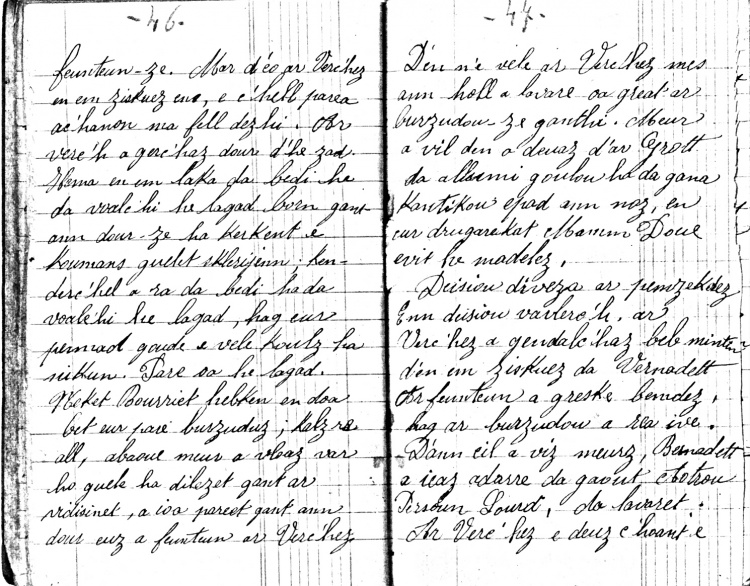 - 46. -
feunteun-ze. Mar d'eo ar Verc'hez
en em ziskuez eno, e c'hell parea
ac'hanon ma fell dezhi. Ar
verc'h a gerc'haz dour d'he zad.
Hema en em laka da bedi he
da voalc'hi he lagad born gant
ann dour-ze ha kerkent e
koumans guelet sklerijenn; ken-
derc'hel a ra da bedi ha da
voalc'hi he lagad, hag eur
pennad goude e vele koulz ha
nikun. Pare oa he lagad.
Neket Bourriet hebken en doa
bet eur pare burzuduz; kalz re
all, abaoue meur a vloaz var
ho guele ha dilezet gant ar
vidisinet, a ioa pareet gant ann
dour euz a feunteun ar Verc'hez
- 47. -
Den n'e vele ar Verc'hez mes
ann holl a lavare oa great ar
burzudou-ze ganthi. Meur
a vil den a deuaz d'ar Grott
da allumi goulou ha da gana
kantikou epad ann noz, en
eur drugarekat Mamm Doue
evit he madelez.
Deisiou diveza ar pemzektez
Enn deisiou varlerc'h, ar
Verc'hez a gendalc'haz beb mintin
d'en em ziskuez da Vernadett
Ar feunteun a greske bemdez,
hag ar burzudou a rea ive.
D'ann eil a viz meurz, Bernadett
a ieaz adarre da gaout Aotrou
Persoun Lourd, da lavaret:
Ar Verc'hez e deuz c'hoant e